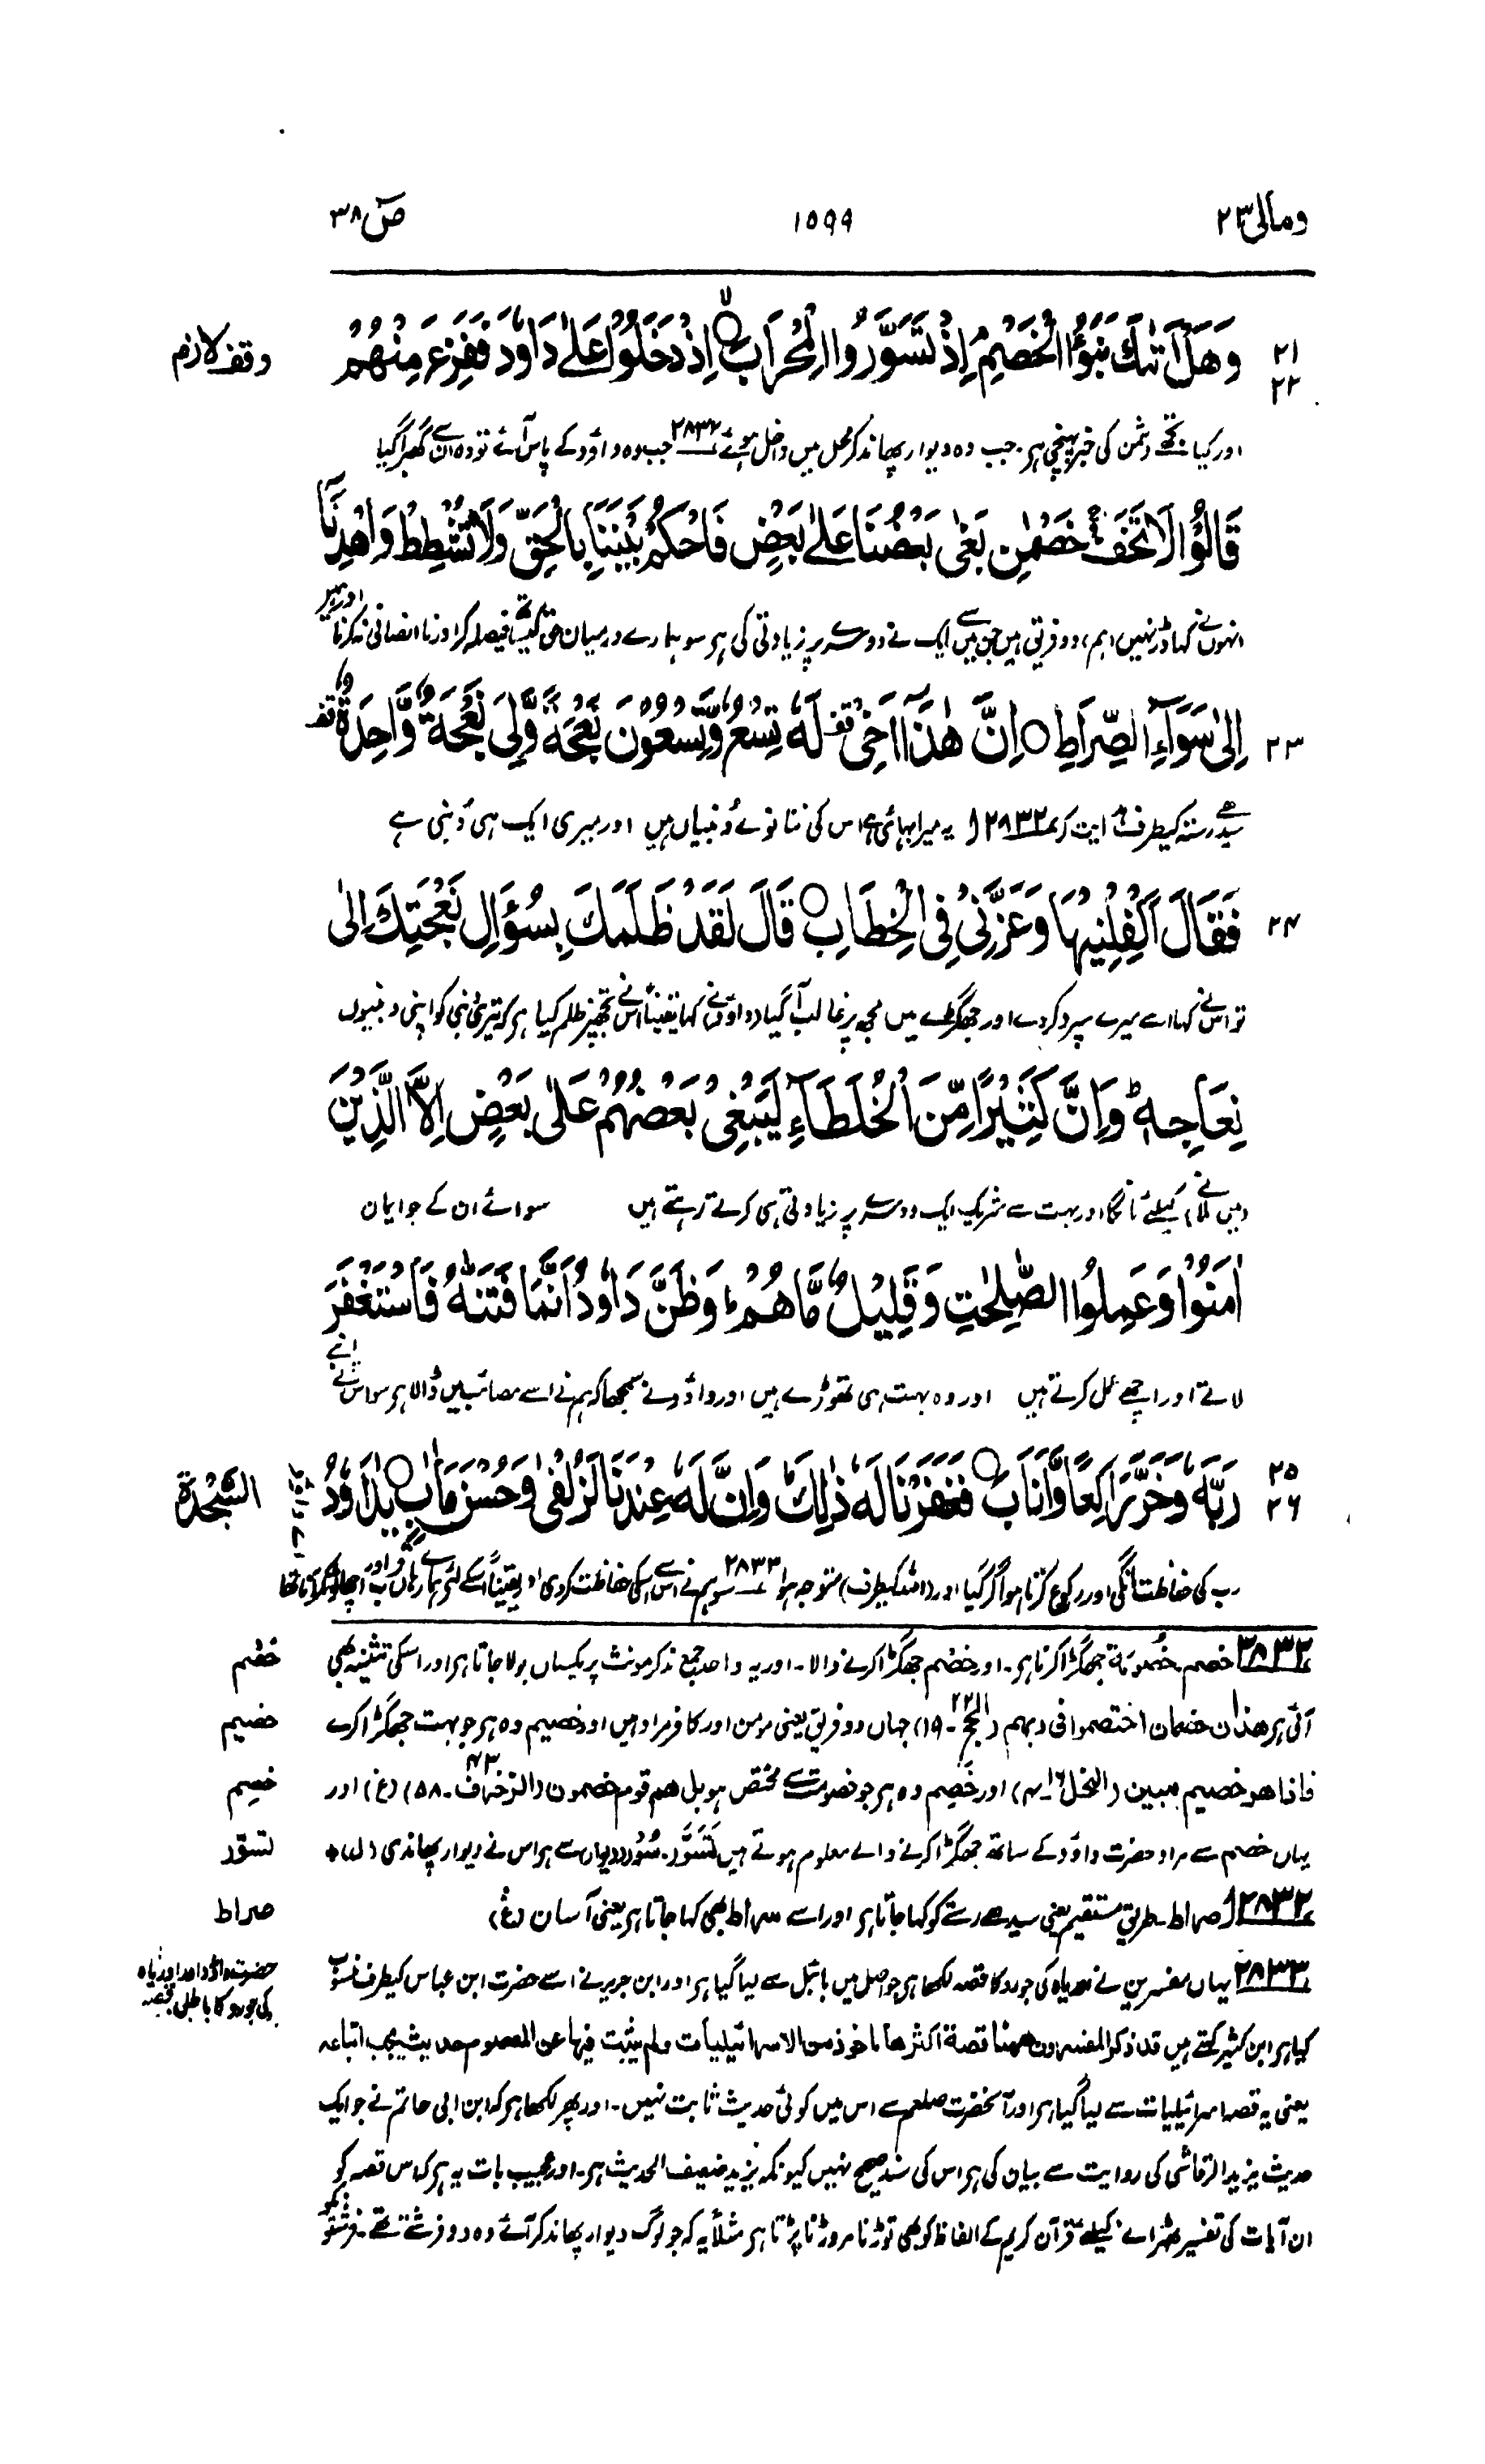 ومآلی ۲۳
۱۵۹۹
صٓ ۳۸
۲۱
۲۲
وَهَلْ اَتٰىكَ نَبَؤُا الْخَصْمِ ۘ اِذْ تَسَوَّرُوا الْمِحْرَابَ ۙ○ اِذْ دَخَلُوْا عَلٰى دَاوٗدَ فَفَزِعَ مِنْهُمْ
وقف لازم
اور کیا تجھے دشمن کی خبر پہنچی ہر۔ جب وہ دیوار پھاند کر محل میں داخل ہوئے ۲۸۳۲ جب وہ داؤد کے پاس آئے تو وہ ان سے گھبرا گیا
قَالُوْا لَا تَخَفْ ۚ خَصْمٰنِ بَغٰى بَعْضُنَا عَلٰى بَعْضٍ فَاحْكُمْ بَيْنَنَا بِالْحَقِّ وَلَا تُشْطِطْ وَاهْدِنَآ
انہوں نے کہا ڈر نہیں (ہم) دو فریق ہیں جن میں سے ایک نے دوسرے پر زیادتی کی ہر سو ہمارے درمیان حق کیساتھ فیصلہ کر اور نا انصافی نہ کرنا اور ہمیں
۲۳
اِلٰى سَوَآءِ الصِّرَاطِ○ اِنَّ هٰذَآ اَخِيْ قف لَهٗ تِسْعٌ وَّتِسْعُوْنَ نَعْجَةً وَّلِيَ نَعْجَةٌ وَّاحِدَةٌ قف
سیدھے رستہ کیطرف ہدایت کر ۲۸۳۲ا یہ میرا بھائی ہے اس کی ننانوے دُنبیاں ہیں اور میری ایک ہی دُنبی ہے
۲۴
فَقَالَ اَكْفِلْنِيْهَا وَعَزَّنِيْ فِي الْخِطَابِ○ قَالَ لَقَدْ ظَلَمَكَ بِسُؤَالِ نَعْجَتِكَ اِلٰى
تو اس نے کہا اسے میرے سپرد کردے اور جھگڑے میں مجھ پر غالب آگیا (داؤد نے) کہا یقیناً اس نے تجھپر ظلم کیا ہر کہ تیری دُنبی کو اپنی دنبیوں
نِعَاجِهٖ ؕ وَاِنَّ كَثِيْرًا مِّنَ الْخُلَطَآءِ لَيَبْغِيْ بَعْضُهُمْ عَلٰى بَعْضٍ اِلَّا الَّذِيْنَ
(میں ملانے) کیلئے مانگا اور بہت سے شریک ایک دوسرے پر زیادتی ہی کرتے رہتے ہیں سوائے ان کے جو ایمان
اٰمَنُوْا وَعَمِلُوا الصّٰلِحٰتِ وَقَلِيْلٌ مَّا هُمْ ؕ وَظَنَّ دَاوٗدُ اَنَّمَا فَتَنّٰهُ فَاسْتَغْفَرَ
لاتے اور اچھے عمل کرتے ہیں اور وہ بہت ہی تھوڑے ہیں اور داؤد نے سمجھا کہ ہم نے اسے مصائب میں ڈالا ہر سو اس نے اپنے
۲۵
۲۶
رَبَّهٗ وَخَرَّ رَاكِعًا وَّاَنَابَ○ فَغَفَرْنَا لَهٗ ذٰلِكَ ؕ وَاِنَّ لَهٗ عِنْدَنَا لَزُلْفٰى وَحُسْنَ مَاٰبٍ○ يٰدَاوٗدُ
السجدة
رب کی حفاظت مانگی اور رکوع کرتا ہوا گر گیا اور (اللہ کیطرف) متوجہ ہوا ۲۸۳۳ سو ہم نے اس سے اسکی حفاظت کردی اور یقیناً اسکے لئے ہمارے ہاں قرب اور اچھا ٹھکانا تھا
۲۸۳۲ خصم۔ خُصُومَة جھگڑا کرنا ہر۔ اور خَصْم جھگڑا کرنے والا۔ اور یہ واحد جمع مذکر مونث پر یکساں بولا جاتا ہر اور اسکی تثنیہ بھی
خصم
آتی ہر هذان خصمان اختصموا فی ربهم (الحج ۲۲-۱۹) جہاں دو فریق یعنی مومن اور کافر مراد ہیں اور خصیم وہ ہر جو بہت جھگڑا کرے
خصیم
فاذا هو خصیم مبین (النحل ۱۶-۴) اور خَصِم وہ ہر جو خصومت سے مختص ہو بل هم قوم خصمون (الزخرف ۴۳-۵۸) (غ) اور
خصِم
یہاں خصم سے مراد حضرت داؤد کے ساتھ جھگڑا کرنے والے معلوم ہوتے ہیں تَسَوَّر۔ سُوْر (دیوار) سے ہر اس نے دیوار پھاندی (ل)
تسوّر
۲۸۳۲ا صراط۔ طریق مستقیم یعنی سیدھے رستے کو کہا جاتا ہر اور اسے سراط بھی کہا جاتا ہر یعنی آسان (غ)
صراط
۲۸۳۳ یہاں مفسرین نے اوریاہ کی جورو کا قصہ لکھا ہر جو اصل میں بائبل سے لیا گیا ہر اور ابن جریر نے اسے حضرت ابن عباس کیطرف منسوب
حضرت داؤد اور اوریاہ
کی جورو کا باطل قصہ
کیا ہر ابن کثیر کہتے ہیں قد ذکر المفسرون ههنا قصة اکثرها ماخوذ من الاسرائیلیات ولم یثبت فیها عن المعصوم حدیث یجب اتباعه
یعنی یہ قصہ اسرائیلیات سے لیا گیا ہر اور آنحضرت صلعم سے اس میں کوئی حدیث ثابت نہیں۔ اور پھر لکھا ہر کہ ابن ابی حاتم نے جو ایک
حدیث یزید الرقاشی کی روایت سے بیان کی ہر اس کی سند صحیح نہیں کیونکہ یزید ضعیف الحدیث ہر۔ اور عجیب بات یہ ہر کہ اس قصہ کو
ان آیات کی تفسیر ٹھرانے کیلئے قرآن کریم کے الفاظ کو بھی توڑنا مروڑنا پڑتا ہر مثلاً یہ کہ جو لوگ دیوار پھاند کر آئے وہ دو فرشتے تھے۔ فرشتوں کو